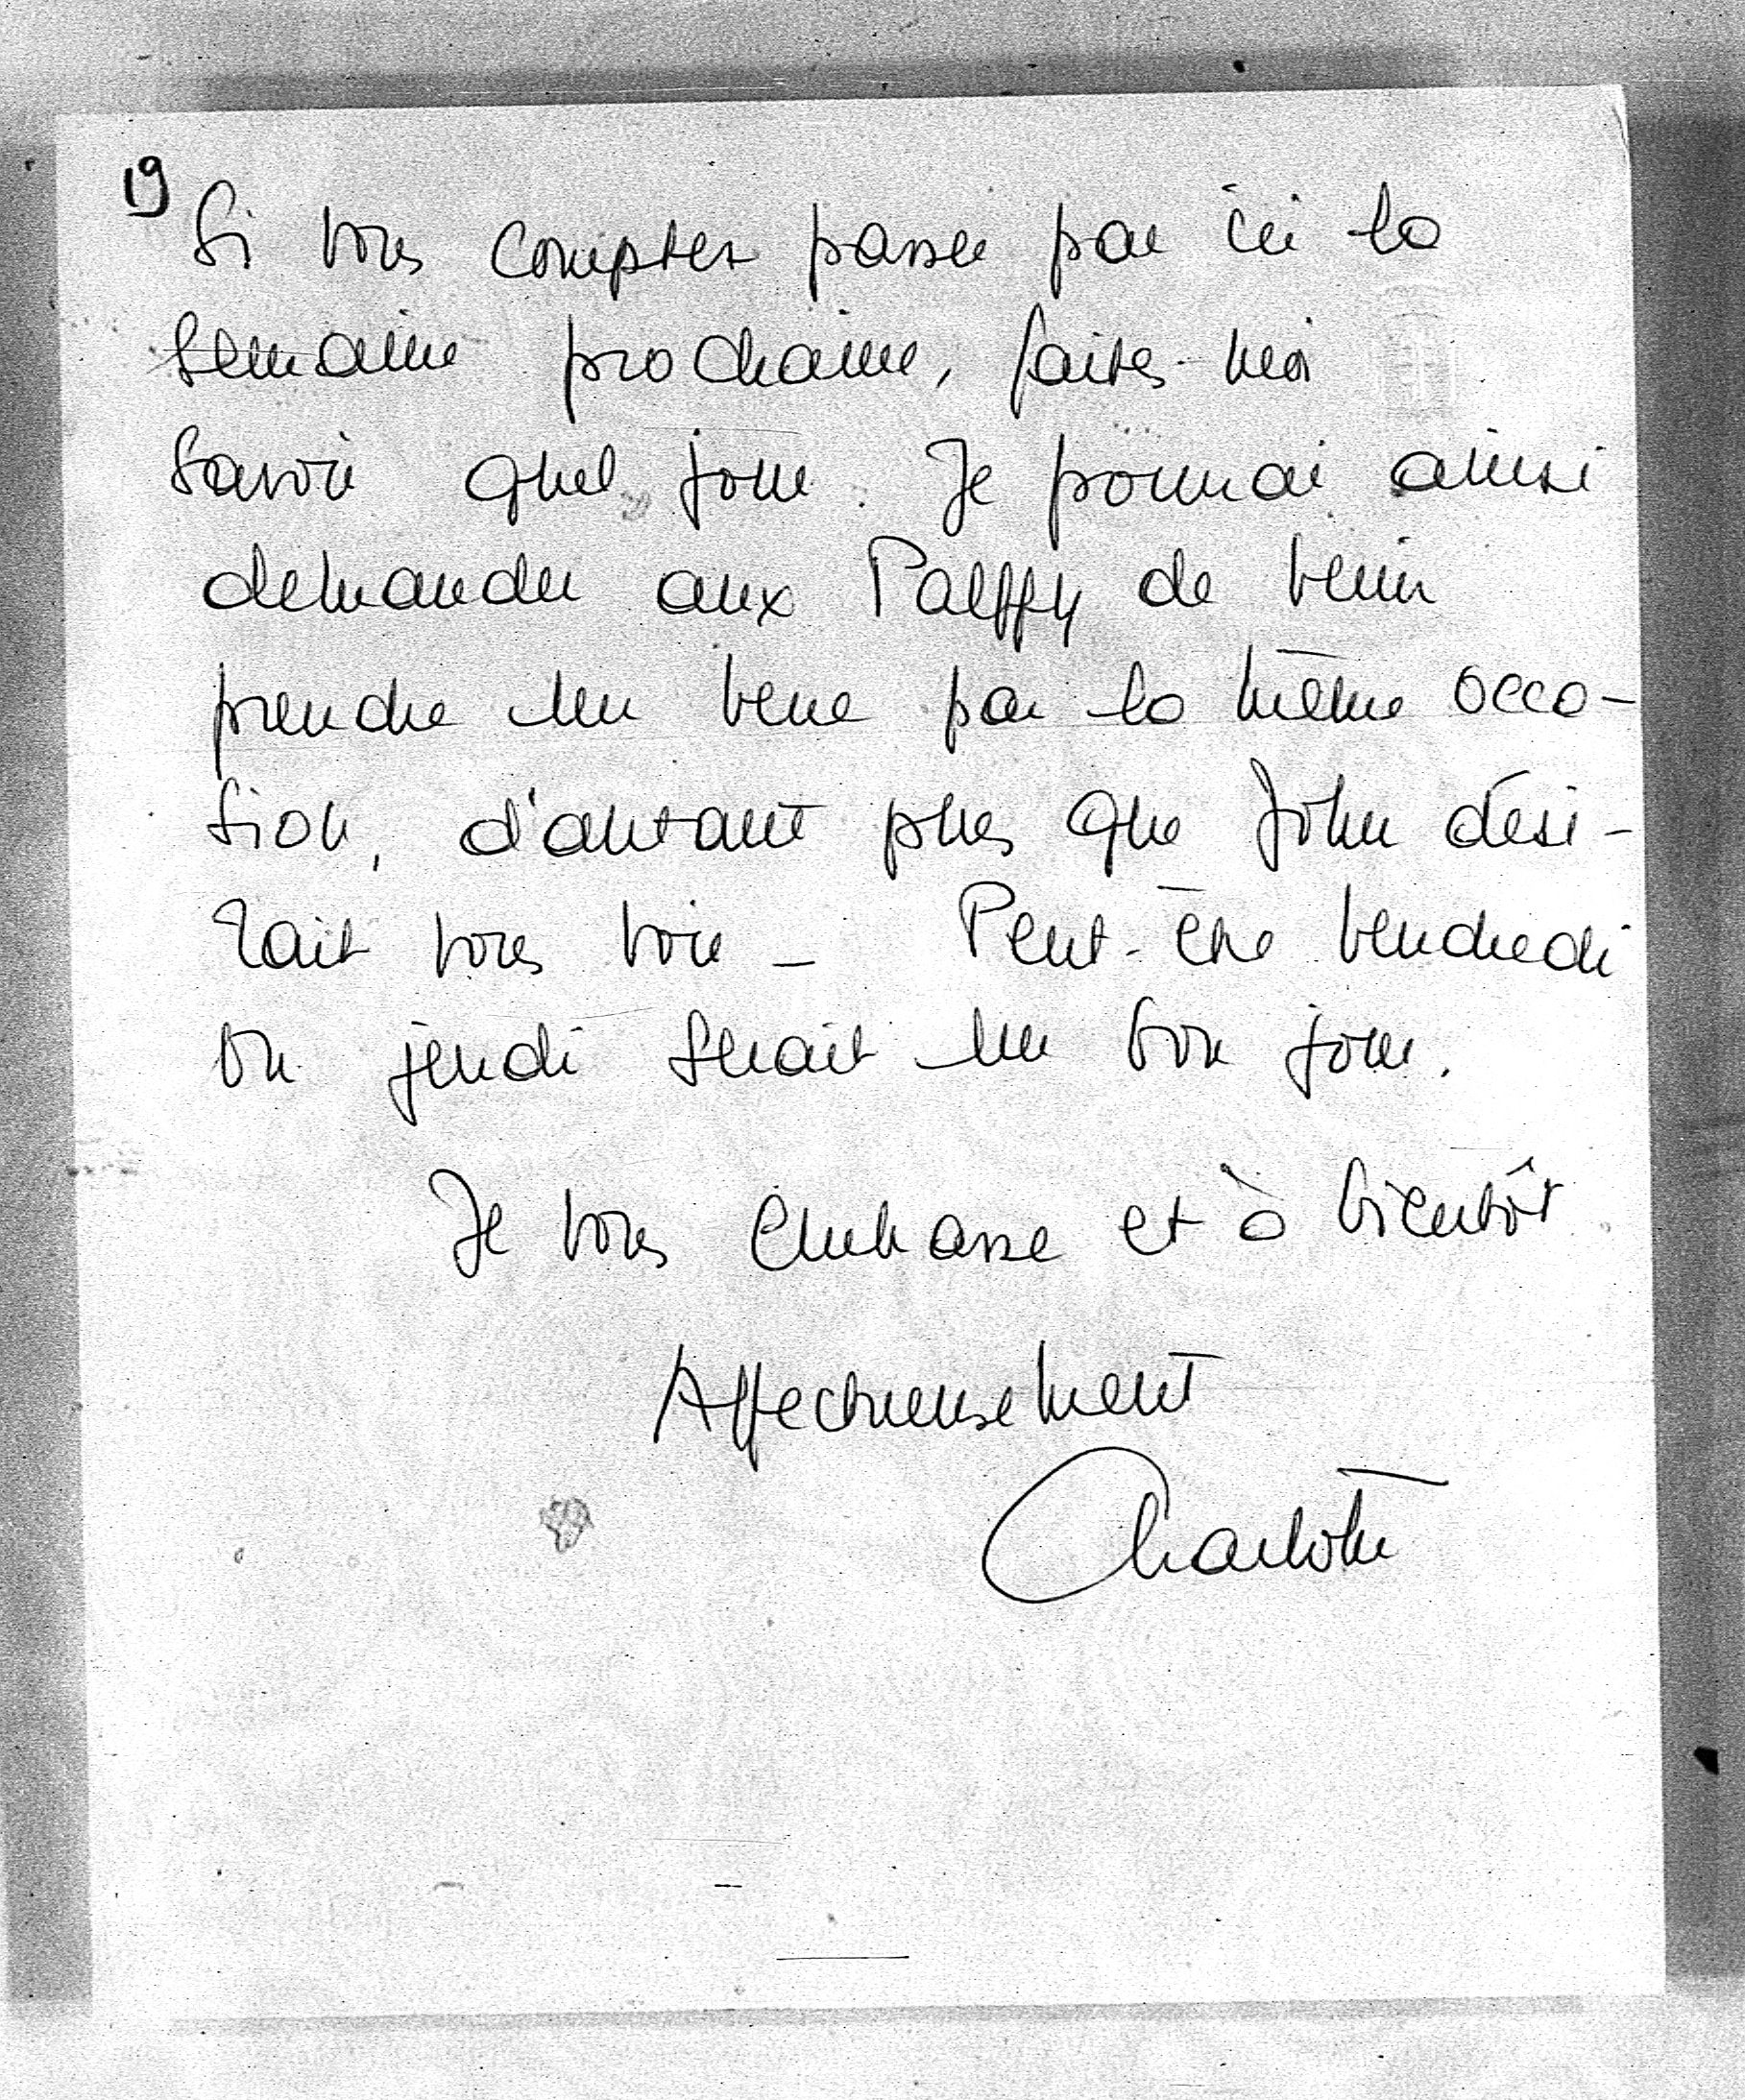 19
Si vous comptez passer par ici la
semaine prochaine, faites-moi
savoir quel jour. Je pourrai ainsi
demander aux Palffy de venir
prendre un verre par la même occa-
sion, d'autant plus que John dési-
rait vous voir - Peut-être vendredi
ou jeudi serait un bon jour.
Je vous embrasse et à bientôt
Affectueusement
Charlotte